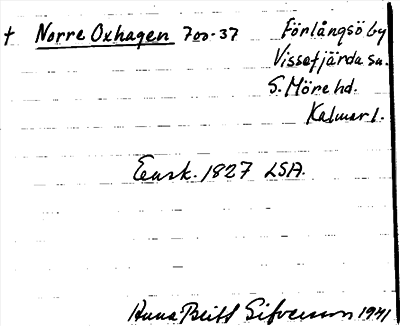 † Norre Oxhagen 700-37 Förlångsö by
Vissefjärda sn.
S. Möre hd.
Kalmar l.
Ensk. 1827 LSA.
Anna Britt Sifverson 1941